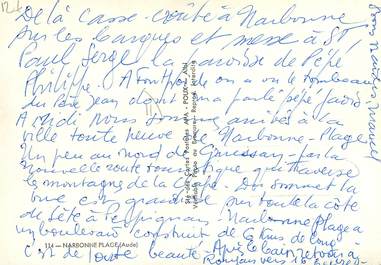 De là casse-croûte à Narbonne
sur les barques et messe à St
Paul Serge la paroisse de Pépé
Philippe. A Fontfroide on a vu le tombeau
du Père Jean dont on a parlé pépé
A midi nous sommes arrivés à la
ville toute neuve de Narbonne-Plage
Un peu au nord de Gruissan par la
nouvelle route touristique qui traverse
les montagnes de la Clape. Du sommet la
vue est grandiose sur toute la côte
de Sète à Perpignan. Narbonne plage a
un boulevard construit de 6 kms de long
C'est de toute beauté. Après le bain retour à
114 — NARBONNE PLAGE (Aude)
Sté des Cartes Postales APA - POUX - Albi
Véritable Photo au Bromure - Reprod. interdite